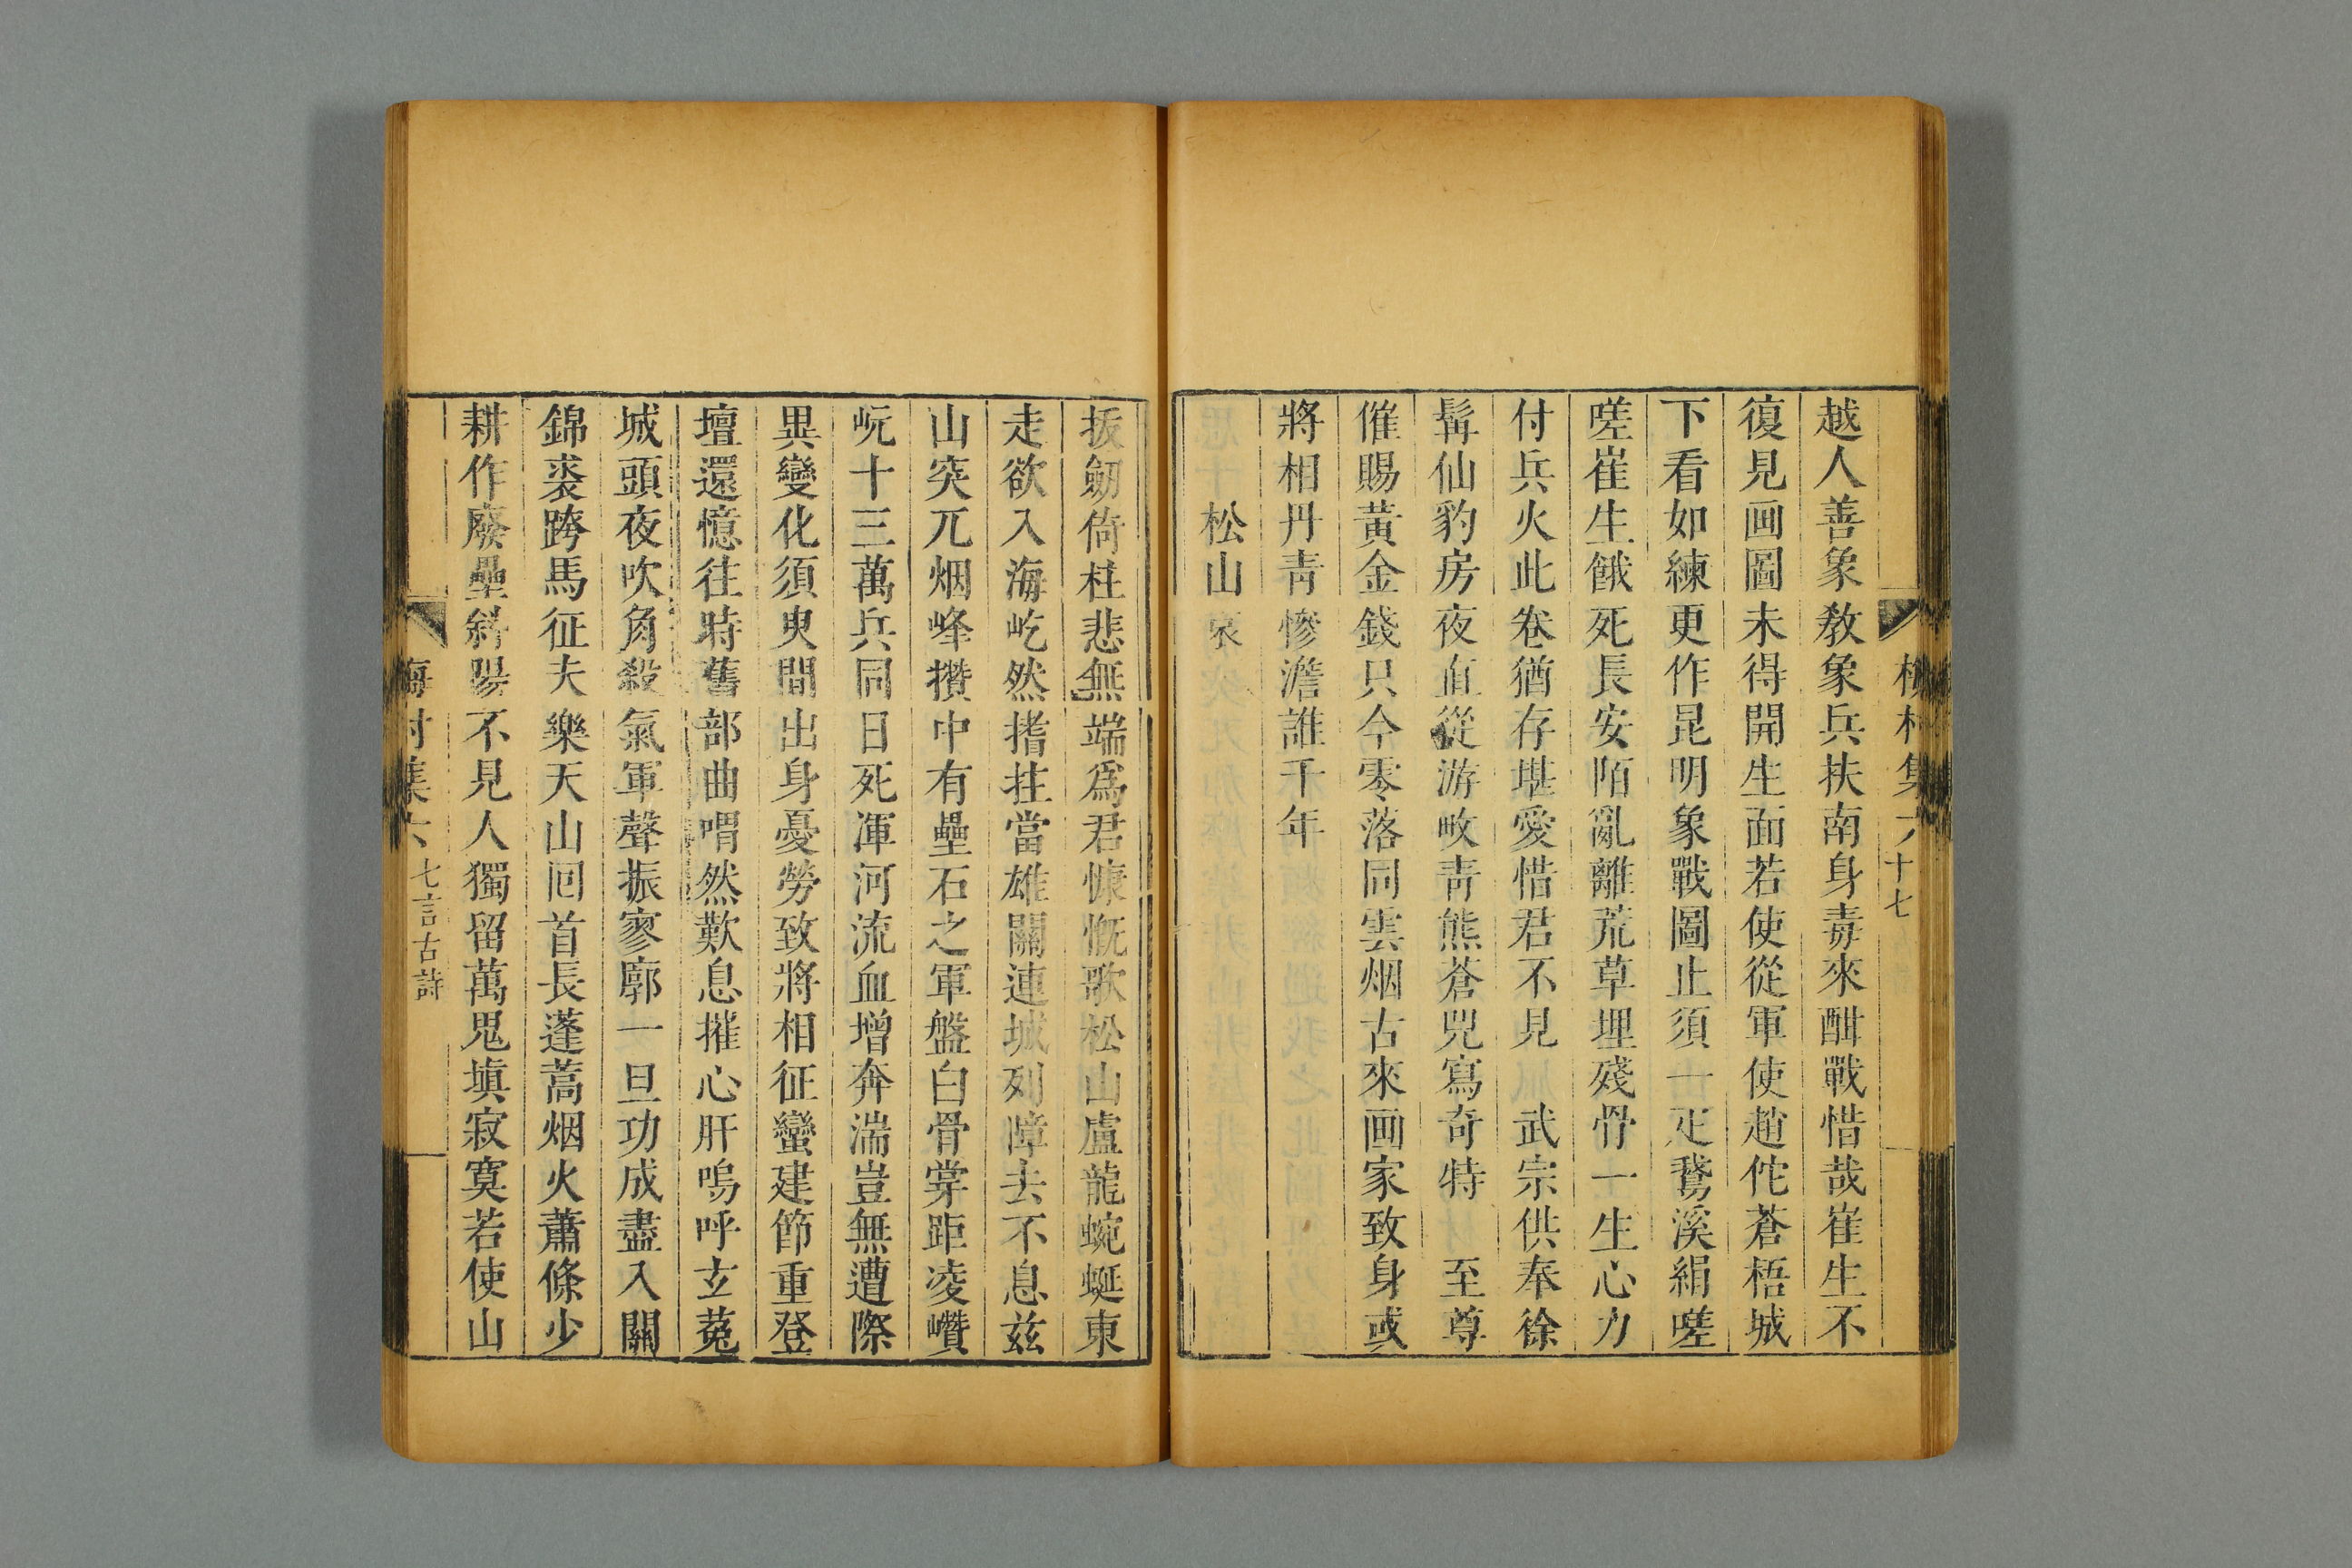 越人善象教象兵扶南身毒來酣戰惜哉崔生不
復見画圖未得開生面若使從軍使趙佗蒼梧城
下看如練更作昆明象戰圖止須一疋鵞溪絹嗟
嗟崔生餓死長安陌亂離荒草埋殘骨一生心力
付兵火此卷猶存堪愛惜君不見武宗供奉徐
髯仙豹房夜直從游畋青熊蒼兕寫奇特至尊
催賜黃金錢只今零落同雲烟古來画家致身或
將相丹青慘澹誰千年
松山哀
拔劒倚柱悲無端爲君慷慨歌松山盧龍蜿蜒東
走欲入海屹然搘拄當雄關連城列障去不息兹
山突兀烟峰攢中有壘石之軍盤白骨掌距凌巑
岏十三萬兵同日死渾河流血增奔湍豈無遭際
異變化須臾間出身憂勞致將相征蠻建節重登
壇還憶往時舊部曲喟然歎息摧心肝嗚呼玄菟
城頭夜吹角殺氣軍聲振寥廓一旦功成盡入關
錦裘跨馬征夫樂天山囘首長蓬蒿烟火蕭條少
耕作廢壘斜陽不見人獨留萬鬼塡寂寞若使山
梅村集六 七言古詩
十七